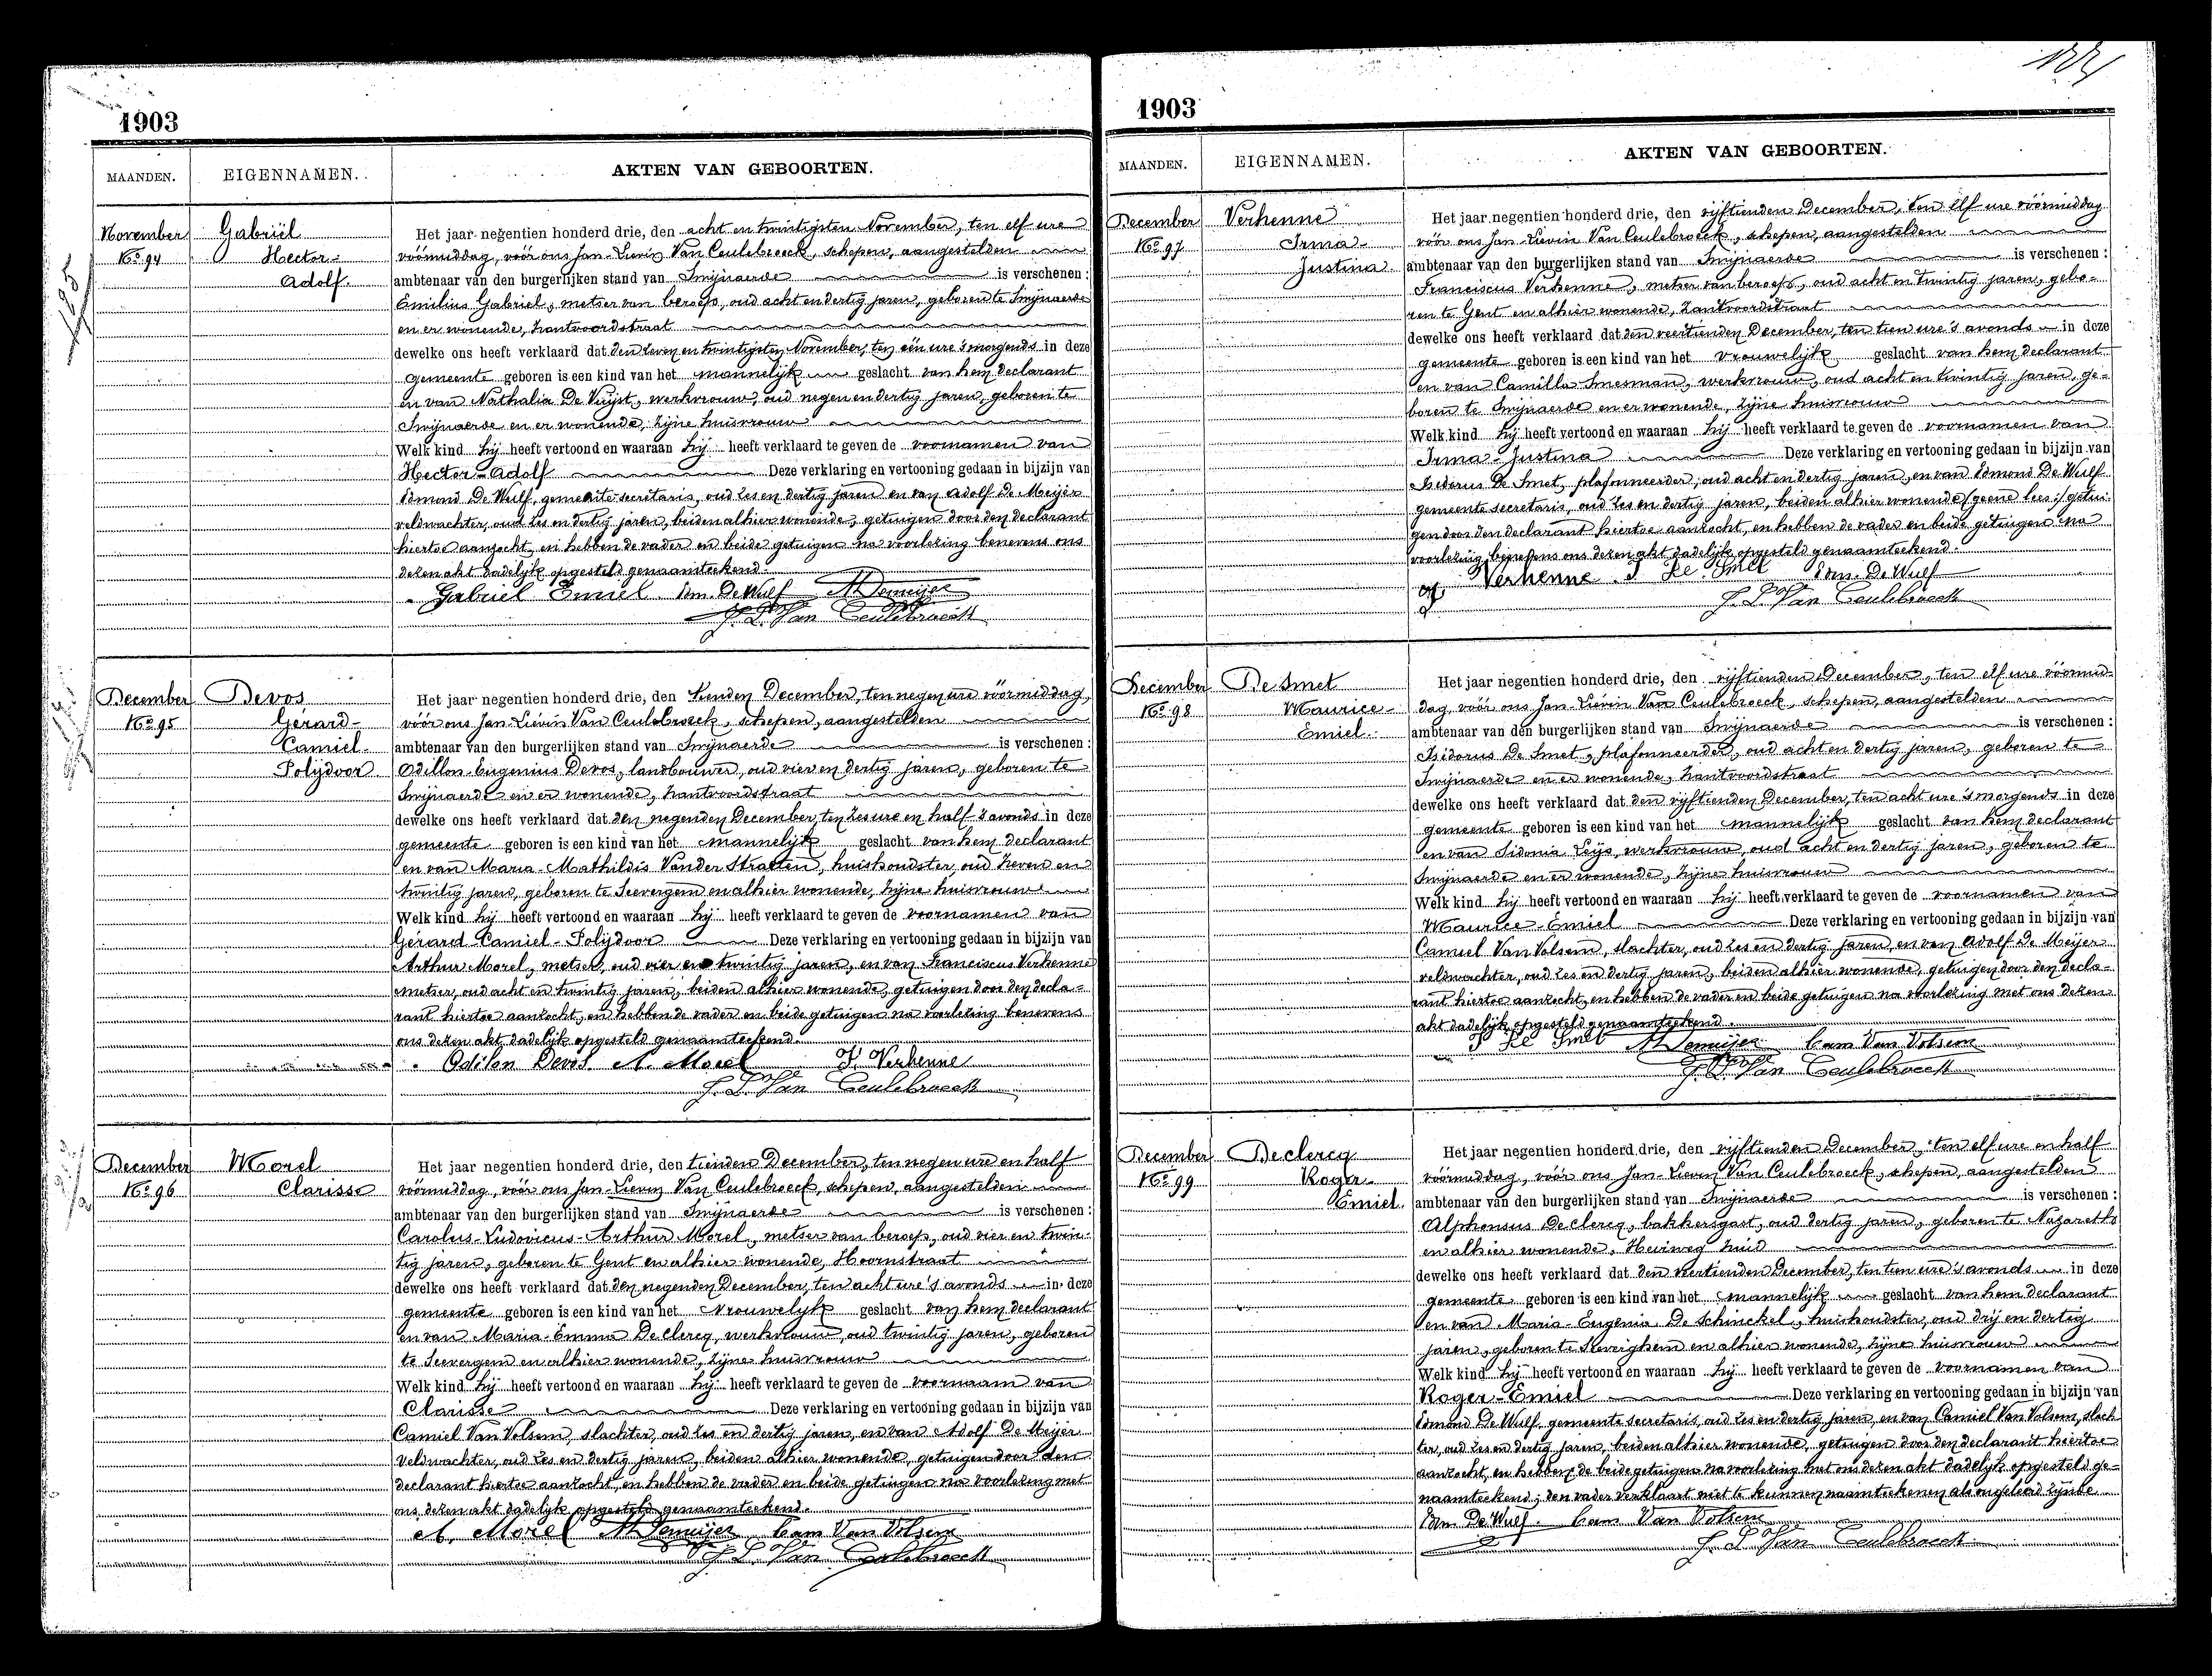 1903
MAANDEN. EIGENNAMEN. AKTEN VAN GEBOORTEN.
November
No 94
Gabriël
Hector-
Adolf.
Het jaar negentien honderd drie, den acht en twintigsten November, ten elf ure
vóórmiddag, vóór ons Jan-Lievin Van Ceulebroeck, schepen, aangestelden
ambtenaar van den burgerlijken stand van Swijnaerde is verschenen:
Emilius Gabriel, metser van beroep, oud acht en dertig jaren, geboren te Swijnaerde
en er wonende, hantvoordstraat
dewelke ons heeft verklaard dat den zeven en twintigsten November, ten één ure 's morgends in deze
gemeente geboren is een kind van het mannelijk geslacht van hem declarant
en van Nathalia De Vuijst, werkvrouw, oud negen en dertig jaren, geboren te
Swijnaerde en er wonende, zijne huisvrouw
Welk kind hij heeft vertoond en waaraan hij heeft verklaard te geven de voornamen van
Hector-Adolf Deze verklaring en vertooning gedaan in bijzijn van
Edmond De Wulf, gemeente secretaris, oud zes en dertig jaren en van Adolf De Meijer
veldwachter, oud zes en dertig jaren, beiden alhier wonende, getuigen door den declarant
hiertoe aanzocht, en hebben de vader en beide getuigen na voorlezing benevens ons
dezen akt dadelijk opgesteld genaamteekend.
Gabriel Emiel Edm. De Wulf A Demeijer
J. L. Van Ceulebroeck
December
No 95
Devos
Gérard-
Camiel-
Polijdoor
Het jaar negentien honderd drie, den tienden December, ten negen ure vóórmiddag,
vóór ons Jan-Lievin Van Ceulebroeck, schepen, aangestelden
ambtenaar van den burgerlijken stand van Swijnaerde is verschenen:
Odillon-Eugenius Devos, landbouwer, oud vier en dertig jaren, geboren te
Swijnaerde en er wonende, hantvoordstraat
dewelke ons heeft verklaard dat den negenden December, ten zes ure en half 's avonds in deze
gemeente geboren is een kind van het mannelijk geslacht van hem declarant
en van Maria-Mathildis Vander Straeten, huishoudster, oud zeven en
twintig jaren, geboren te Seevergem en alhier wonende, zijne huisvrouw
Welk kind hij heeft vertoond en waaraan hij heeft verklaard te geven de voornamen van
Gérard-Camiel-Polijdoor Deze verklaring en vertooning gedaan in bijzijn van
Arthur Morel, metser, oud vier en twintig jaren, en van Franciscus Verhenne
metser, oud acht en twintig jaren, beiden alhier wonende, getuigen door den decla-
rant hiertoe aanzocht, en hebben de vader en beide getuigen na voorlezing benevens
ons dezen akt dadelijk opgesteld genaamteekend.
Odilon Devos A. Morel F. Verhenne
J. L. Van Ceulebroeck
December
No 96
Morel
Clarisse
Het jaar negentien honderd drie, den tienden December, ten negen ure en half
vóórmiddag, vóór ons Jan-Lievin Van Ceulebroeck, schepen, aangestelden
ambtenaar van den burgerlijken stand van Swijnaerde is verschenen:
Carolus-Ludovicus-Arthur Morel, metser van beroep, oud vier en twin-
tig jaren, geboren te Gent en alhier wonende, Hoornstraat
dewelke ons heeft verklaard dat den negenden December, ten acht ure 's avonds in deze
gemeente geboren is een kind van het vrouwelijk geslacht van hem declarant
en van Maria-Emma De Clercq, werkvrouw, oud twintig jaren, geboren
te Seevergem en alhier wonende, zijne huisvrouw
Welk kind hij heeft vertoond en waaraan hij heeft verklaard te geven de voornaam van
Clarisse Deze verklaring en vertooning gedaan in bijzijn van
Camiel Van Volsem, slachter, oud zes en dertig jaren, en van Adolf De Meijer
veldwachter, oud zes en dertig jaren, beiden alhier wonende, getuigen door den
declarant hiertoe aanzocht, en hebben de vader en beide getuigen na voorlezing met
ons dezen akt dadelijk opgesteld genaamteekend.
A. Morel A Demeijer Cam Van Volsem
J. L. Van Ceulebroeck
1903
MAANDEN. EIGENNAMEN. AKTEN VAN GEBOORTEN.
December
No 97
Verhenne
Irma-
Justina.
Het jaar negentien honderd drie, den vijftienden December, ten elf ure vóórmiddag
vóór ons Jan-Lievin Van Ceulebroeck, schepen, aangestelden
ambtenaar van den burgerlijken stand van Swijnaerde is verschenen:
Franciscus Verhenne, metser van beroep, oud acht en twintig jaren, gebo-
ren te Gent en alhier wonende, hantvoordstraat
dewelke ons heeft verklaard dat den veertienden December, ten tien ure 's avonds in deze
gemeente geboren is een kind van het vrouwelijk geslacht van hem declarant
en van Camilla Smesman, werkvrouw, oud acht en twintig jaren, ge-
boren te Swijnaerde en er wonende, zijne huisvrouw
Welk kind hij heeft vertoond en waaraan hij heeft verklaard te geven de voornamen van
Irma-Justina Deze verklaring en vertooning gedaan in bijzijn van
Isidorus De Smet, plafonneerder, oud acht en dertig jaren, en van Edmond De Wulf
gemeente secretaris, oud zes en dertig jaren, beiden alhier wonende /geene lees:/ getui-
gen door den declarant hiertoe aanzocht, en hebben de vader en beide getuigen na
voorlezing benevens ons dezen akt dadelijk opgesteld genaamteekend.
F. Verhenne I De Smet Edm. De Wulf
J. L. Van Ceulebroeck
December
No 98
De Smet
Maurice-
Emiel.
Het jaar negentien honderd drie, den vijftienden December, ten elf ure vóórmid-
dag, vóór ons Jan-Lievin Van Ceulebroeck, schepen, aangestelden
ambtenaar van den burgerlijken stand van Swijnaerde is verschenen:
Isidorus De Smet, plafonneerder, oud acht en dertig jaren, geboren te
Swijnaerde en er wonende, hantvoordstraat
dewelke ons heeft verklaard dat den vijftienden December, ten acht ure 's morgends in deze
gemeente geboren is een kind van het mannelijk geslacht van hem declarant
en van Sidonia Leijs, werkvrouw, oud acht en dertig jaren, geboren te
Swijnaerde en er wonende, zijne huisvrouw
Welk kind hij heeft vertoond en waaraan hij heeft verklaard te geven de voornamen van
Maurice-Emiel Deze verklaring en vertooning gedaan in bijzijn van
Camiel Van Volsem, slachter, oud zes en dertig jaren, en van Adolf De Meijer
veldwachter, oud zes en dertig jaren, beiden alhier wonende, getuigen door den decla-
rant hiertoe aanzocht, en hebben de vader en beide getuigen na voorlezing met ons dezen
akt dadelijk opgesteld genaamteekend.
I De Smet A Demeijer Cam Van Volsem
J. L. Van Ceulebroeck
December
No 99
Declercq
Roger-
Emiel.
Het jaar negentien honderd drie, den vijftienden December, ten elf ure en half
vóórmiddag, vóór ons Jan-Lievin Van Ceulebroeck, schepen, aangestelden
ambtenaar van den burgerlijken stand van Swijnaerde is verschenen:
Alphonsus Declercq, bakkersgast, oud dertig jaren, geboren te Nazareth
en alhier wonende, Heirweg huid
dewelke ons heeft verklaard dat den veertienden December, ten tien ure 's avonds in deze
gemeente geboren is een kind van het mannelijk geslacht van hem declarant
en van Maria-Eugenia De Schinckel, huishoudster, oud drij en dertig
jaren, geboren te Heverghem en alhier wonende, zijne huisvrouw
Welk kind hij heeft vertoond en waaraan hij heeft verklaard te geven de voornamen van
Roger-Emiel Deze verklaring en vertooning gedaan in bijzijn van
Edmond De Wulf, gemeente secretaris, oud zes en dertig jaren, en van Camiel Van Volsem, slach-
ter, oud zes en dertig jaren, beiden alhier wonende, getuigen door den declarant hiertoe
aanzocht, en hebben de beide getuigen na voorlezing met ons dezen akt dadelijk opgesteld ge-
naamteekend; den vader verklaart niet te kunnen naamteekenen als ongeleerd zijnde.
Edm. De Wulf Cam Van Volsem
J. L. Van Ceulebroeck